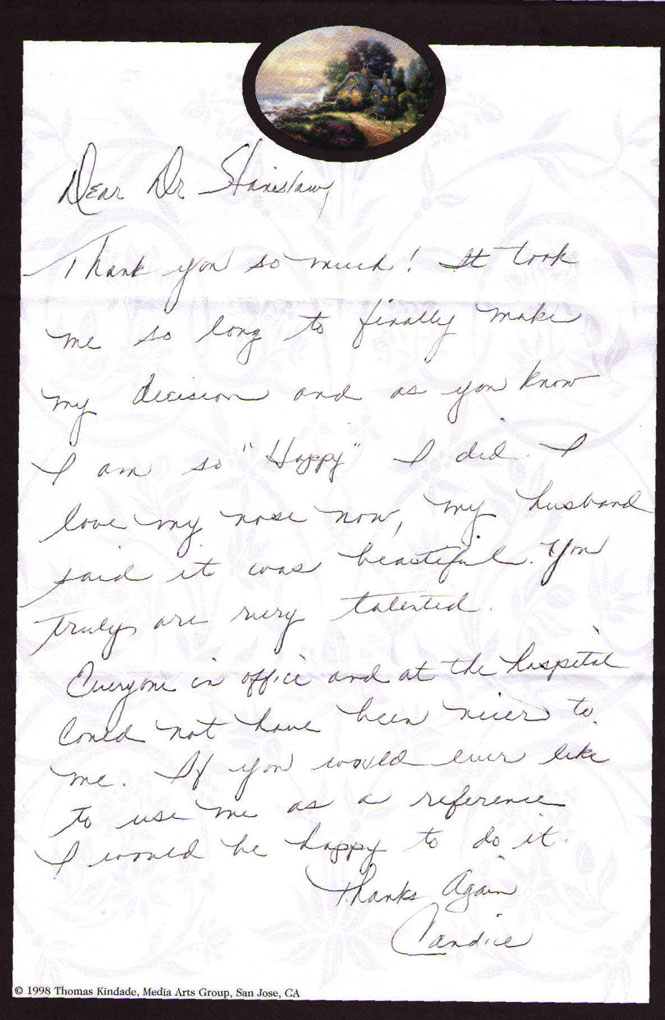 Dear Dr Stanislaw
Thank you so much! It took
me so long to finally make
my decision and as you know
I am so "Happy" I did. I
love my nose now, my husband
said it was beautiful. You
truly are very talented.
Everyone in office and at the hospital
could not have been nicer to
me. If you would ever like
to use me as a reference
I would be happy to do it.
Thanks Again
Candice
© 1998 Thomas Kindade, Media Arts Group, San Jose, CA